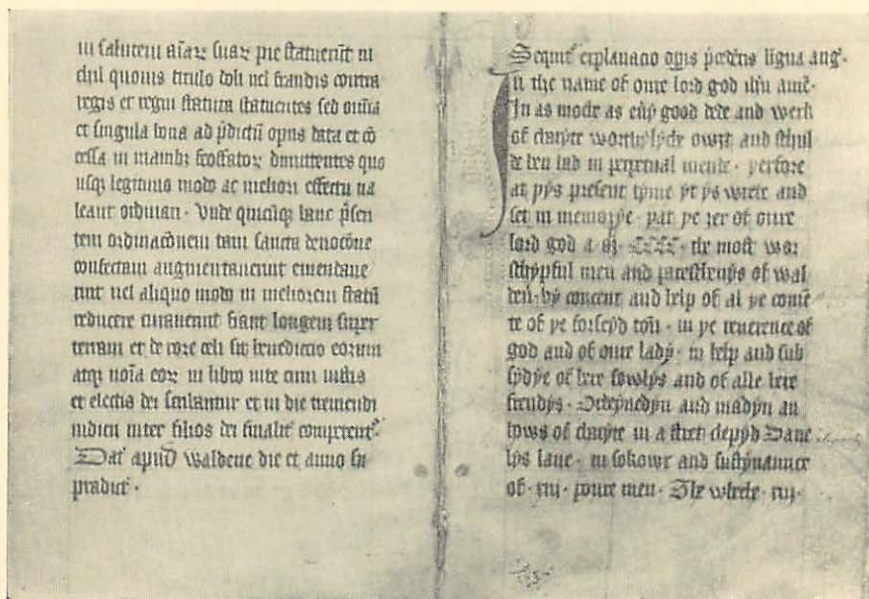 in salutem aīaꝝ suaꝝ pie statuerūt ni
chil quouis titulo doli uel fraudis contra
regis et regni statuta statuentes sed omīa
et singula bona ad p̄dictū opus data et cō
cessa in manibꝫ feoffatoꝝ dimittentes quo
usqꝫ legitimo modo ac meliori effectu ua
leant ordinari · Vnde quicūqꝫ hanc p̄sen
tem ordinacōnem tam sancta deuocōne
confectam augmentauerint emendaue
rint uel aliquo modo in meliorem statū
reducere curauerint fiant longeui super
terram et de rore celi sit benediccio eorum
atqꝫ noīa eoꝝ in libro uite cum iustis
et electis dei scribantur et in die tremendi
iudicii inter filios dei finalit᷑ computent᷑·
Dat᷑ apud waldene die et anno su
pradict᷑ ·
Sequit᷑ explanacio op̄is p̄cedētis ligua ang᷑·
In the name of oure lord god ih̄u amē·
In as moche as eūy good dede and werk
of charyte worthyly
owt and schul
de ben had in perpetual mende · yerfore
at yys present tyme yt ys wrete and
set in memorye · yat ye zer of oure
lord god a m · CCCC · the most wor
schypful men and pareschenys of wal
den · by concent and help of al ye comē
te of ye forseyd toū · in ye reuerence of
god and of oure lady · in help and sub
sydye of here sowlys and of alle here
frendys · Ordeynedyn and madyn an
hows of charyte in a stret clepyd Dane
lys lane · in sokowr and sustynaunce
of · xiij · poure men · The wheche · xiij ·